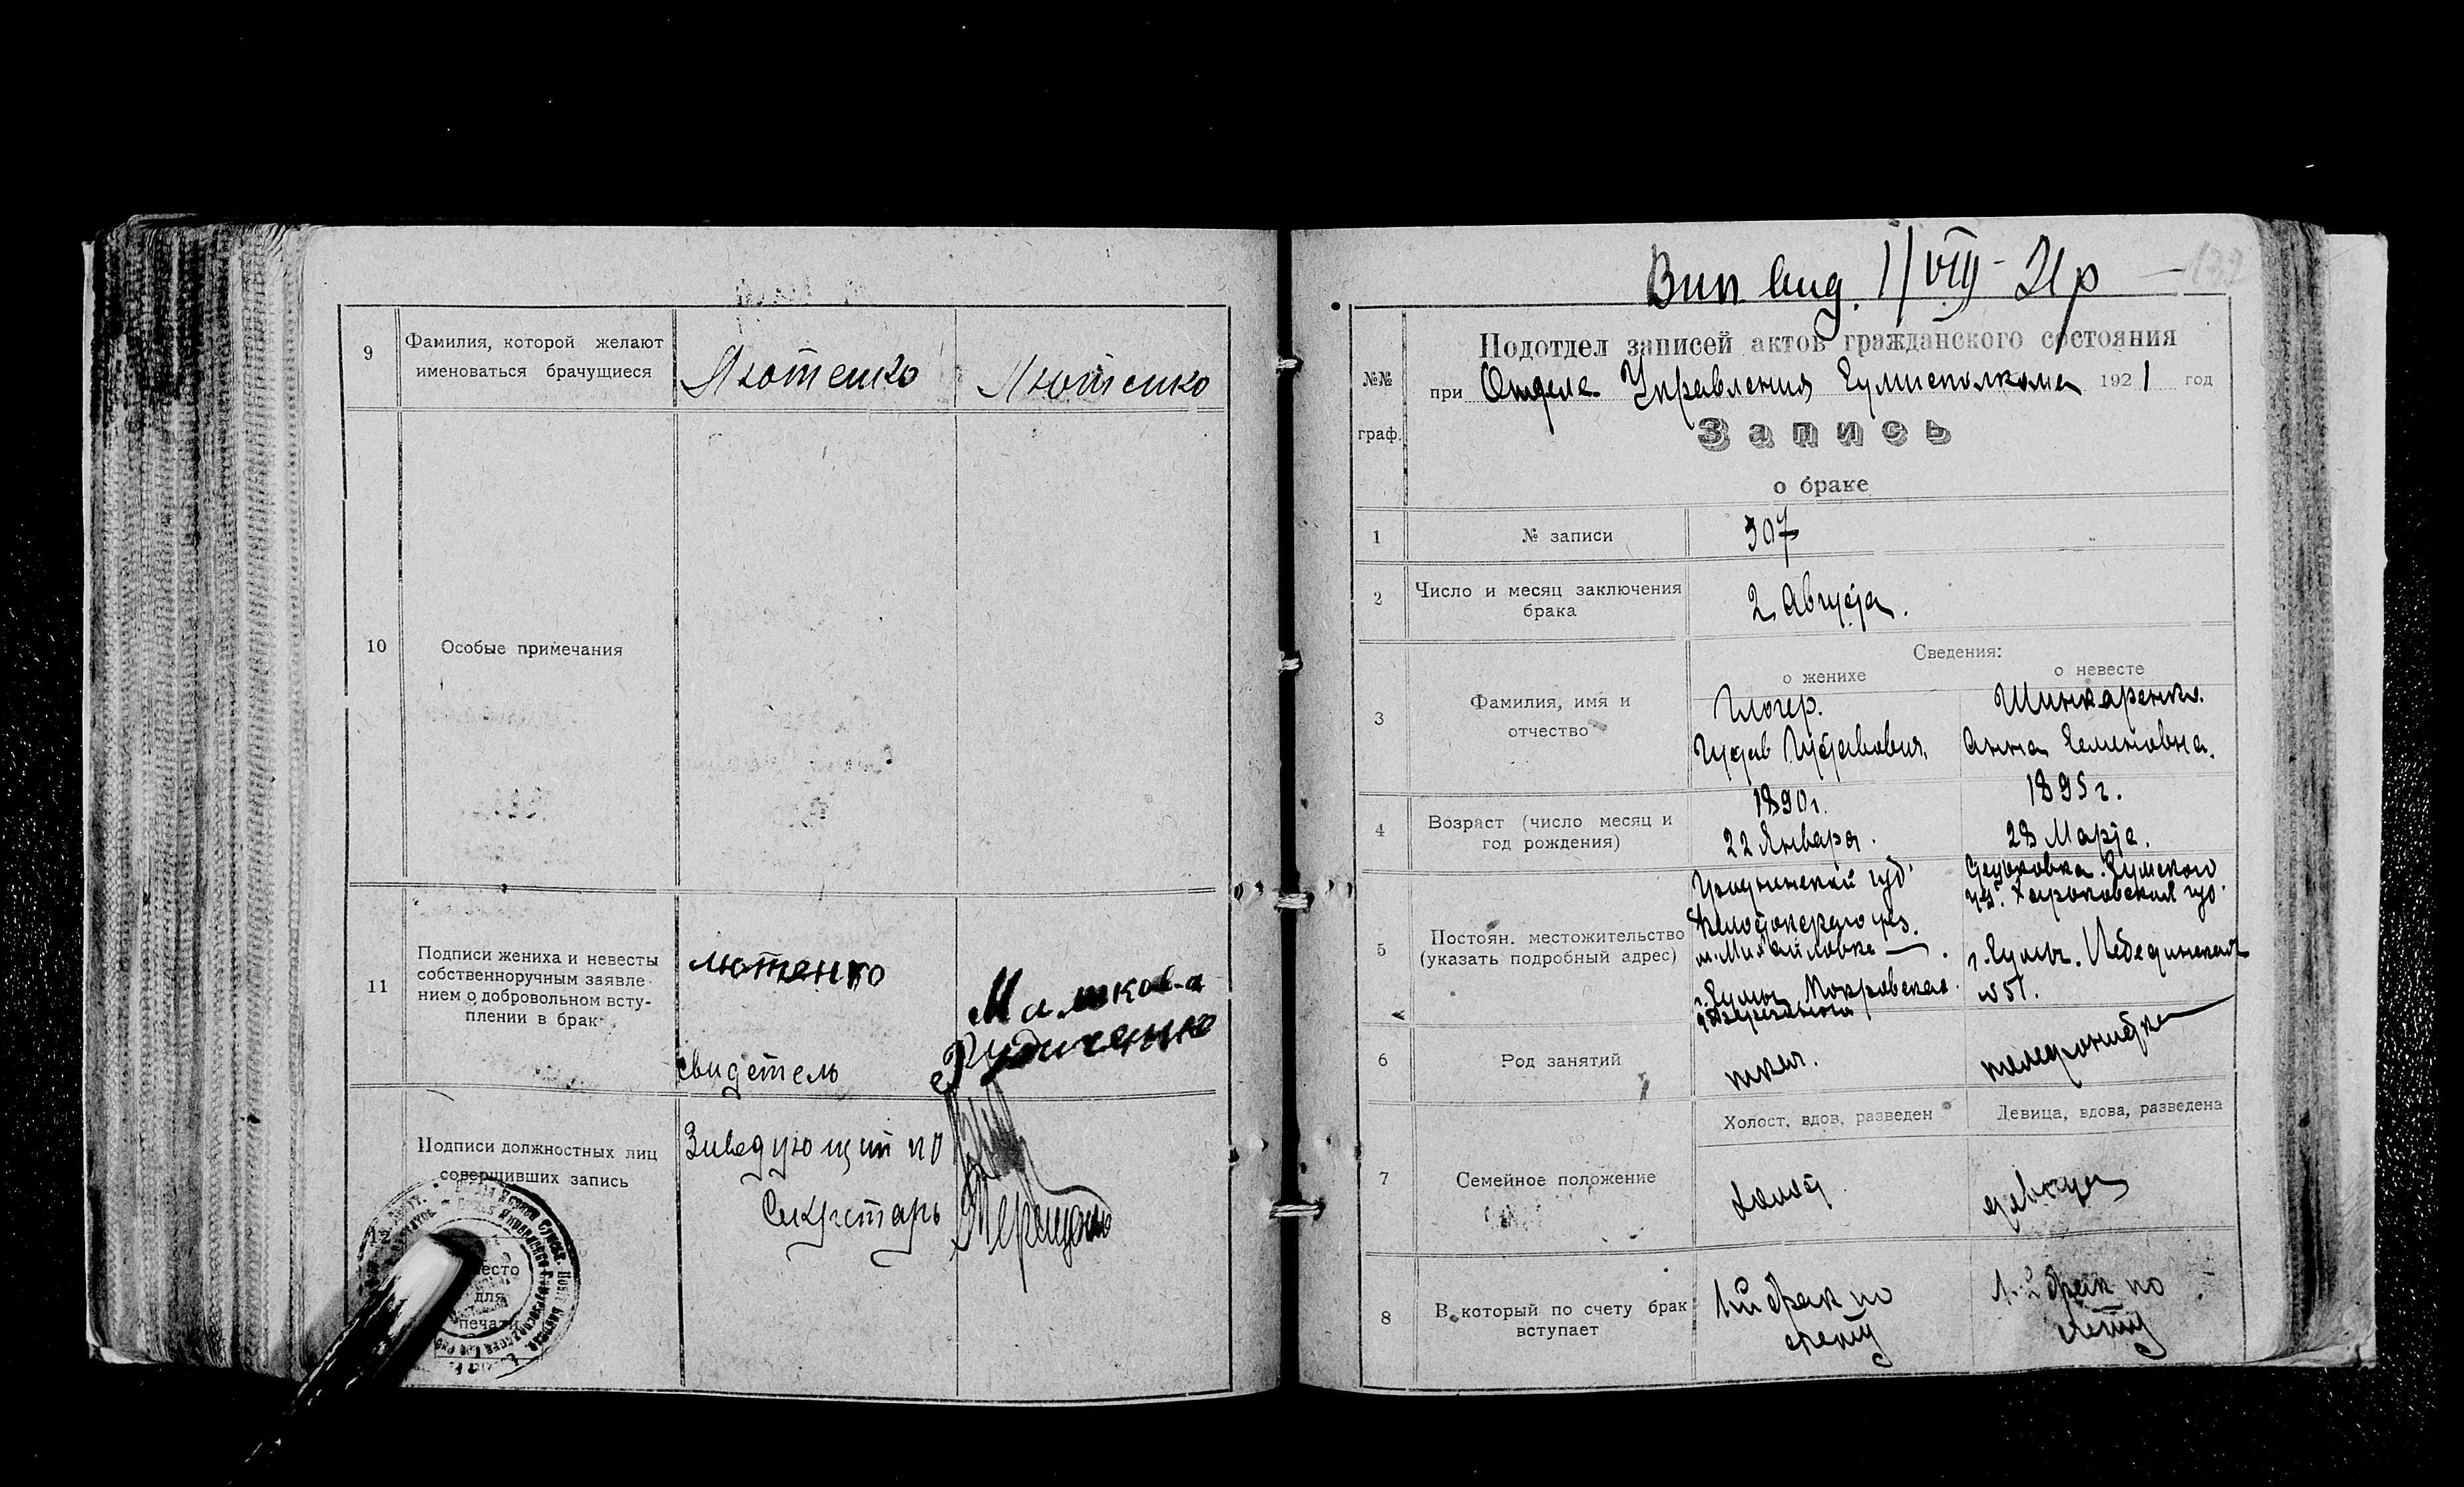 9
Фамилия, которой желают
именоваться брачущиеся
Лютенко
Лютенко
10
Особые примечания
11
Подписи жениха и невесты
собственноручным заявле-
нием о добровольном всту-
плении в брак
лютенко
Маликова
Рудиченко
свидетель
Подписи должностных лиц
совершивших запись
Заведующий по
Секретарь
место
для
печати
1/VIII - 21р
132
№№
граф.
Подотдел записей актов гражданского состояния
при Отделе Управления Сумисполкома 1921 год
Запись
о браке
1
№ записи
307
2
Число и месяц заключения
брака
2 Августа.
3
Фамилия, имя и
отчество
Сведения:
о женихе
о невесте
Глогер.
Густав Густавович
Шинкаренко.
Анна Семеновна.
4
Возраст (число месяц и
год рождения)
1890г.
22 Января.
1895г.
28 Марта.
5
Постоян. местожительство
(указать подробный адрес)
м. Михайловка
г. Сумы Покровская
Сумского
уез. Харьковская губ.
г. Сумы. Лебединская
№ 51.
6
Род занятий
телефонистка
7
Семейное положение
Холост, вдов, разведен
Девица, вдова, разведена
холост
девица
8
В который по счету брак
вступает
1ый брак по
счету
1-й брак по
счету